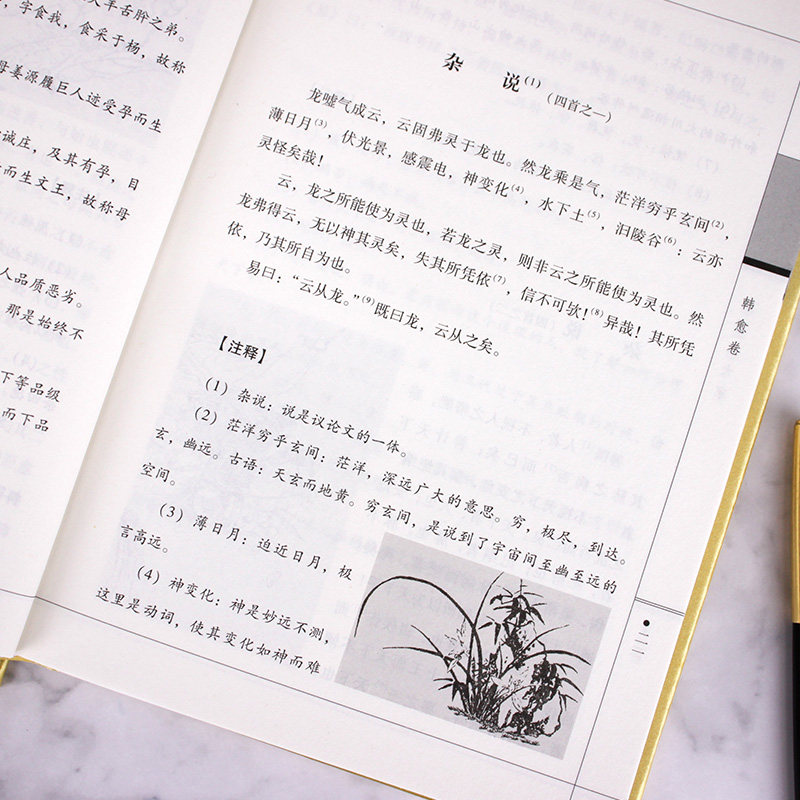 羊舌肸之弟。
，字食我，食采于杨，故称
母姜源履巨人迹受孕而生
诚庄，及其有孕，目
而生文王，故称母
人品质恶劣。
那是始终不
下等品级
而下品
杂 说(1)(四首之一)
龙嘘气成云，云固弗灵于龙也。然龙乘是气，茫洋穷乎玄间(2)，
薄日月(3)，伏光景，感震电，神变化(4)，水下土(5)，汩陵谷(6)：云亦
灵怪矣哉！
云，龙之所能使为灵也，若龙之灵，则非云之所能使为灵也。然
龙弗得云，无以神其灵矣，失其所凭依(7)，信不可欤！(8)异哉！其所凭
依，乃其所自为也。
易曰：“云从龙。”(9)既曰龙，云从之矣。
【注释】
(1) 杂说：说是议论文的一体。
(2) 茫洋穷乎玄间：茫洋，深远广大的意思。穷，极尽，到达。
玄，幽远。古语：天玄而地黄。穷玄间，是说到了宇宙间至幽至远的
空间。
(3) 薄日月：迫近日月，极
言高远。
(4) 神变化：神是妙远不测，
这里是动词，使其变化如神而难
韩愈卷
二一